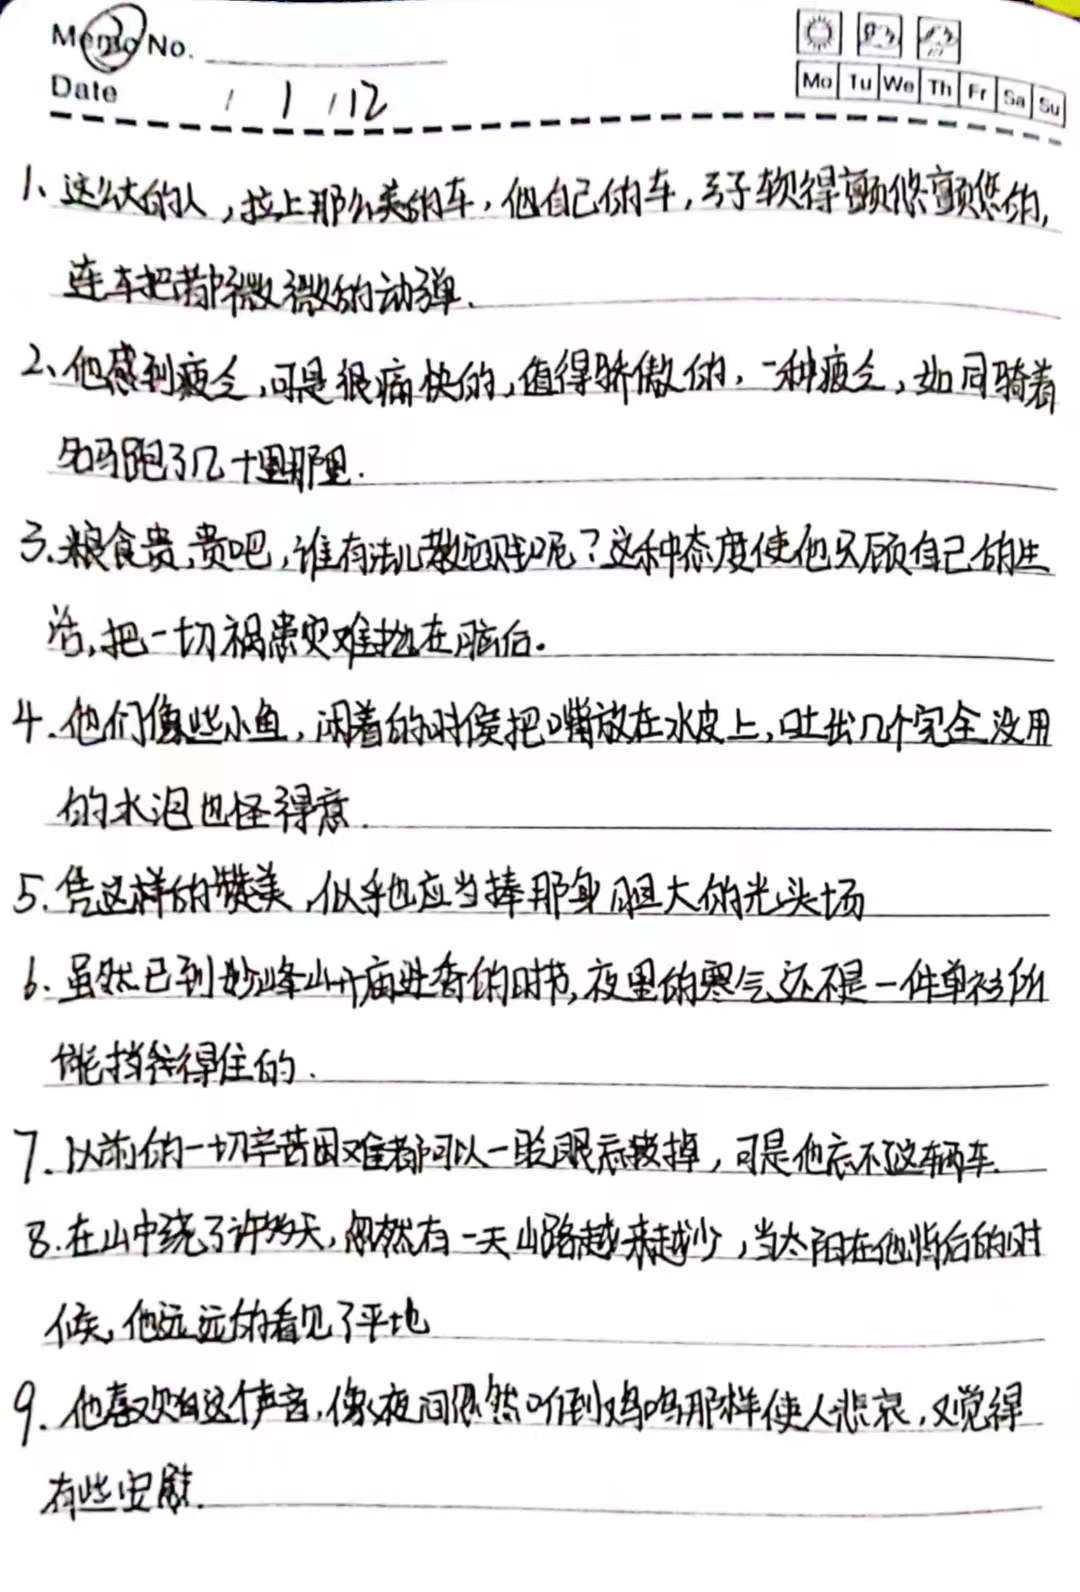 Memo No.
Date / 1 / 12
Mo Tu We Th Fr Sa Su
1、这么大的人,拉上那么美的车,他自己的车,弓子软得颤悠颤悠的,
连车把都微微的动弹.
2、他感到疲乏,可是很痛快的,值得骄傲的,一种疲乏,如同骑着
名马跑了几十里那里.
3.粮食贵,贵吧,谁有法儿教它贱呢?这种态度使他只顾自己的生
活,把一切祸患灾难抛在脑后。
4.他们像些小鱼,闲着的时候把嘴放在水皮上,吐出几个完全没用
的水泡也怪得意.
5.凭这样的赞美,似乎也应当捧那身胆大的光头场
6.虽然已到妙峰山开庙进香的时节,夜里的寒气还不是一件单衫所
能挡得住的.
7.以前的一切辛苦困难都可以一眨眼忘掉,可是他忘不这辆车.
8.在山中绕了许多天,忽然有一天山路越来越少,当太阳在他背后的时
候,他远远的看见了平地
9.他喜欢这个声音,像夜间忽然听到鸡鸣那样使人悲哀,又觉得
有些安慰.